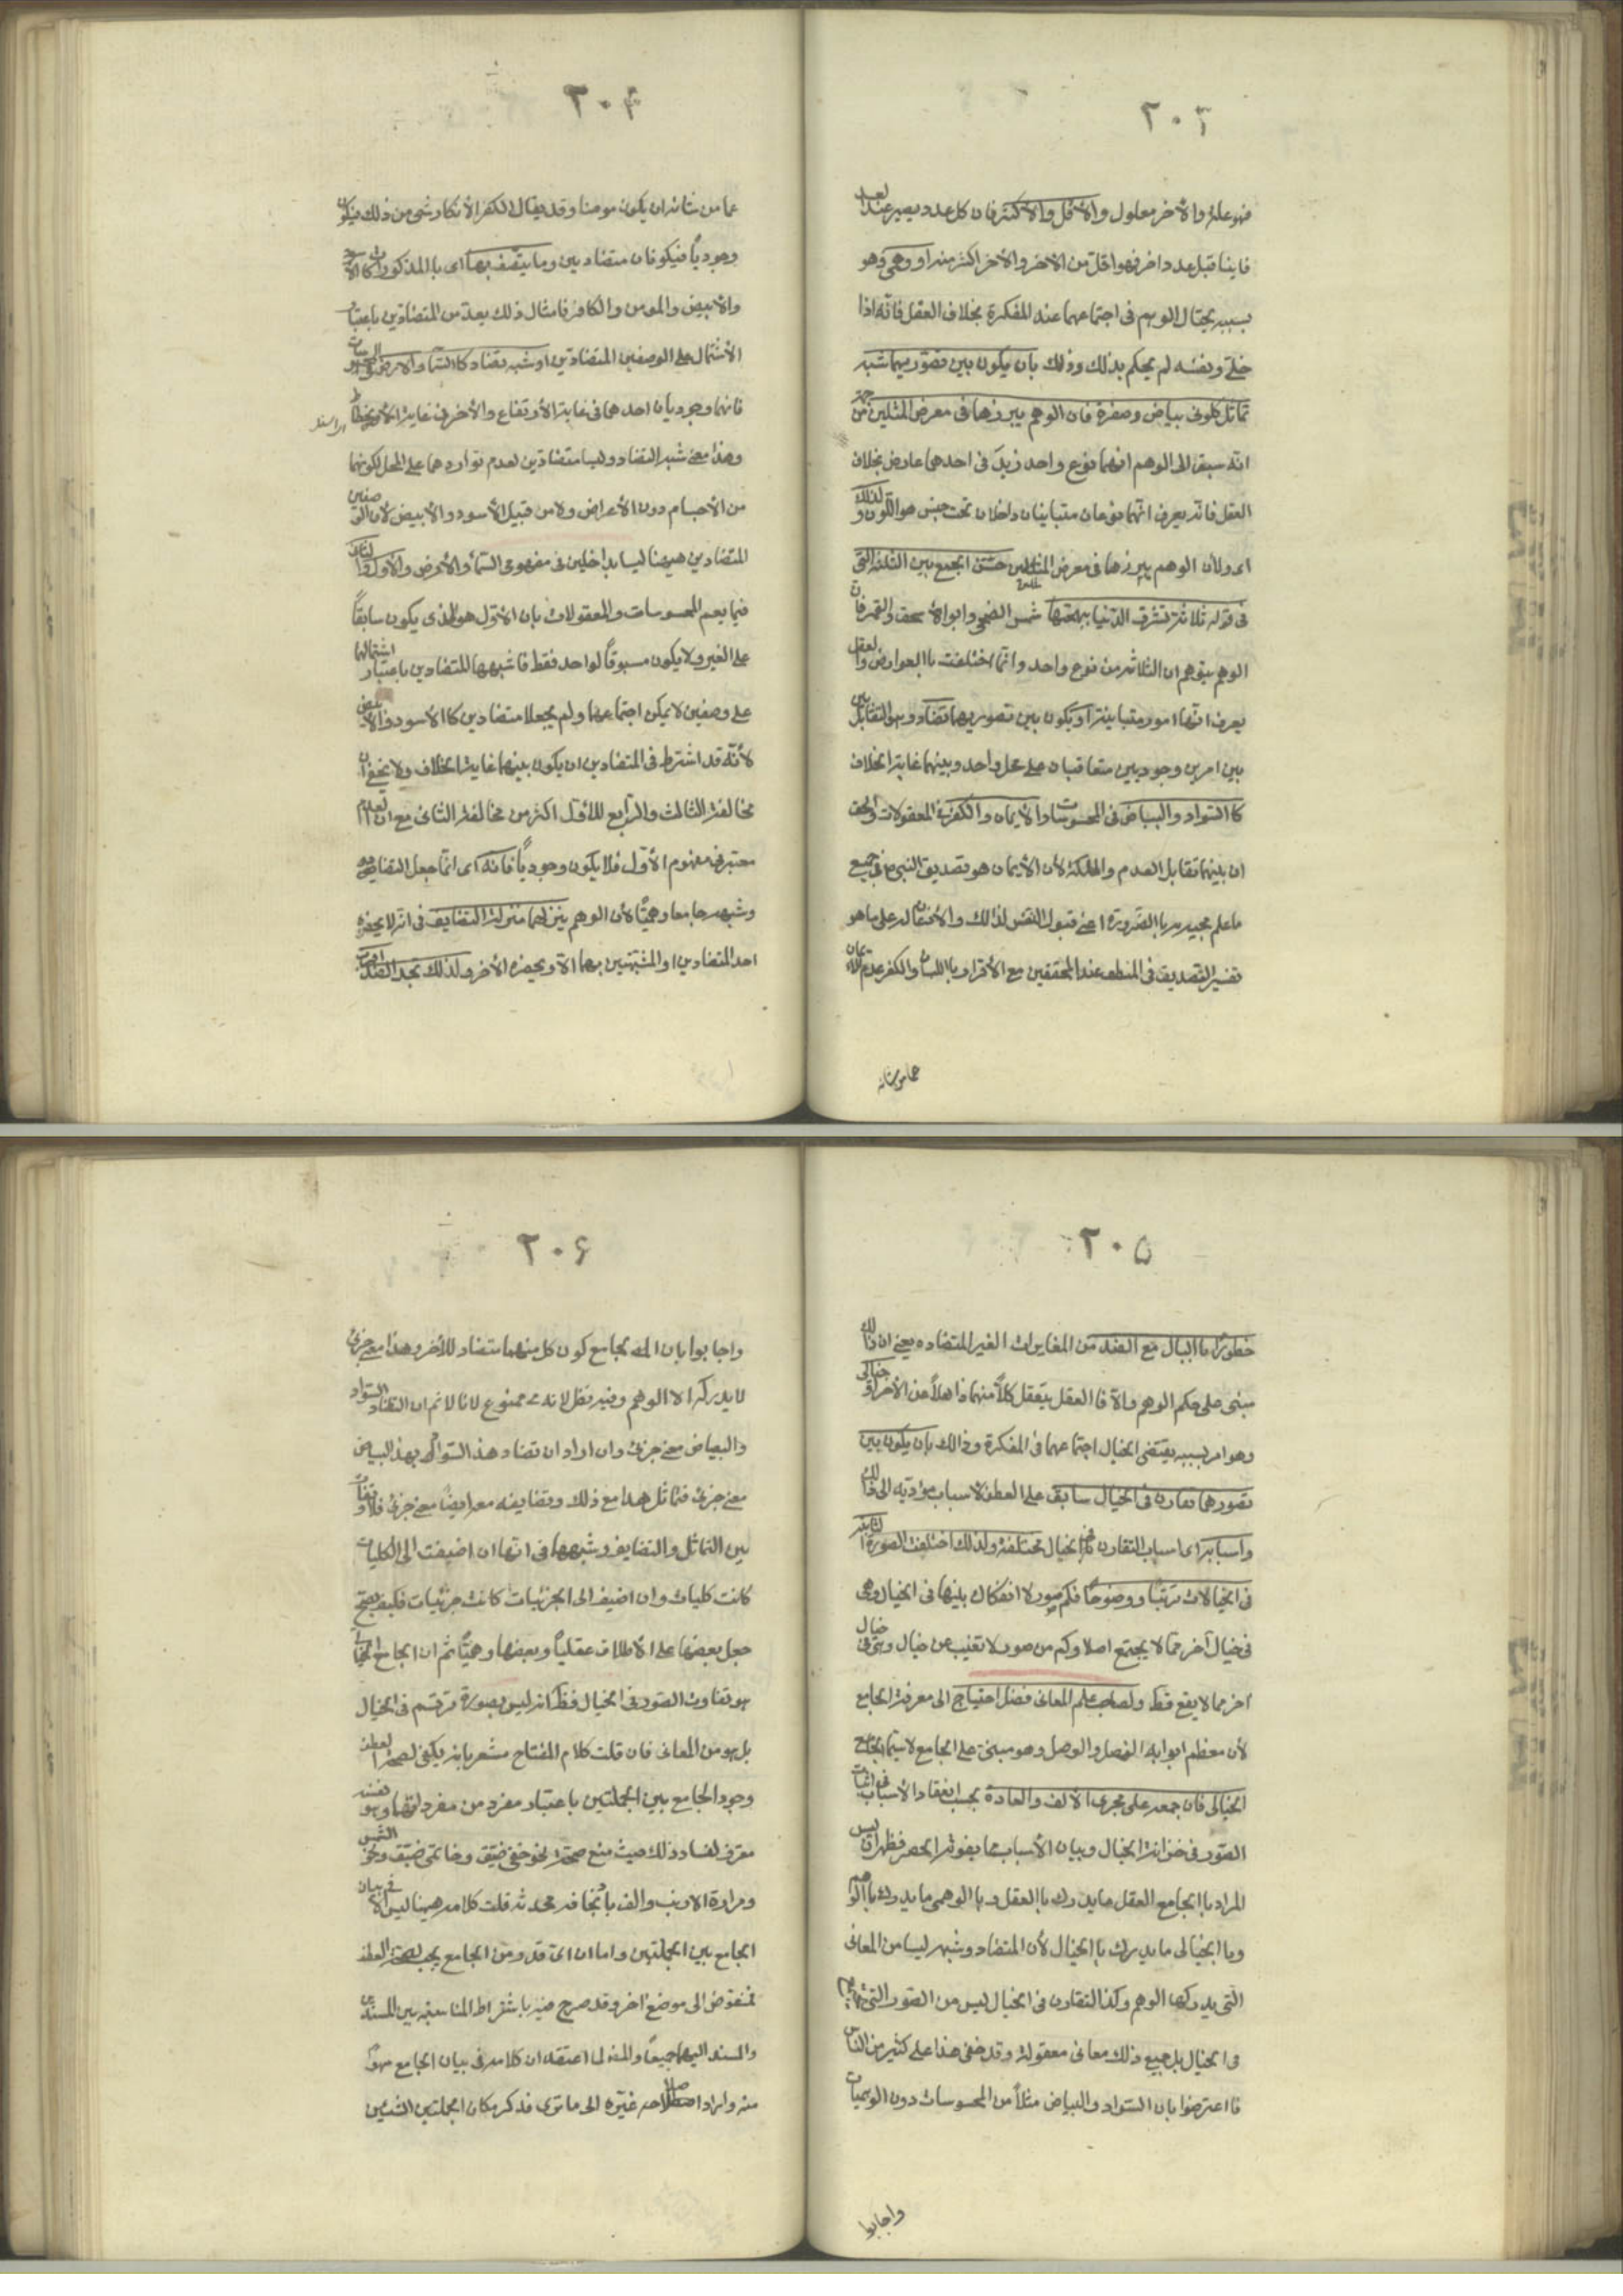 ٢٠٣
فهو علة والآخر معلول والأقل والأكثر فان كل عدد يصير عند العد
فانيا قبل عدد اخر فهو اقل من الآخر والآخر اكثر منه او وهمي وهو
بسببه يحتال الوهم في اجتماعهما عند المفكرة بخلاف العقل فانه اذا
خلي ونفسه لم يحكم بذلك وذلك بان يكون بين تصوريهما شبه
تماثل كلوني بياض وصفرة فان الوهم يبرزهما في معرض المثلين من جهة
انه سبق الى الوهم انهما نوع واحد زيد في احدهما عارض بخلاف
العقل فانه يعرف انهما نوعان متباينان داخلان تحت جنس هو اللون ولذلك
اى ولأن الوهم يبرزهما في معرض المثلين حسن الجمع بين الثلثة التي
في قوله ثلاثة تشرق الدنيا ببهجتها شمس الضحى وابو اسحق والقمر فان
الوهم يتوهم ان الثلاثة من نوع واحد وانما اختلفت بالعوارض والعقل
يعرف انها امور متباينة او يكون بين تصوريهما تضاد وهو التقابل
بين امرين وجوديين متعاقبان على محل واحد وبينهما غاية الخلاف
كا السواد والبياض في المحسوسات والأيمان والكفر في المعقولات والحق
ان بينهما تقابل العدم والملكة لأن الأيمان هو تصديق النبى ص في جميع
ما علم مجيئه به با الضرورة اعني قبول النفس لذالك والأذعان له على ما هو
تفسير التصديق في المنطق عند المحققين مع الأقرار با اللسان والكفر عدم الايمان
عما من شانه
٢٠٤
عما من شانه ان يكون مومنا وقد يقال الكفر الأنكار شئ من ذلك فيكون
وجودياً فيكونان متضادين وما يتصف بها اى با المذكورات كا الأسود
والأبيض والمومن والكافر فامثال ذلك يعد من المتضادين باعتبار
الأشتمال على الوصفين المتضادين او شبه تضاد كا السماء والأرض
فانهما وجوديان احدهما في غاية الأرتفاع والأخر في غاية الأنحطاط
وهذا معنى شبه التضاد وليسا متضادين لعدم تواردهما على المحل لكونهما
من الأجسام دون الأعراض ولا من قبيل الأسود والأبيض لأن الوصفين
المتضادين هيهنا ليسا بداخلين في مفهومى السماء والأرض والأول والثاني
فيما يعم المحسوسات والمعقولات بان الأول هو الذى يكون سابقاً
على الغير ولا يكون مسبوقاً لواحد فقط فاشبهها للمتضادين باعتبار اشتمالهما
على وصفين لا يمكن اجتماعهما ولم يجعلا متضادين كا الأسود والأبيض
لأنه قد اشترط في المتضادين ان يكون بينهما غاية الخلاف ولا يخفى ان
مخالفة الثالث والرابع للأول اكثر من مخالفة الثانى مع ان العدم
معتبر في مفهوم الأول فلا يكون وجودياً فانه اى انما جعل التضاد
وشبهه جامعا وهمياً لأن الوهم ينزلهما منزلة التضايف في انه لا يحضره
احد المتضادين او المشبهين بهما الا ويحضره الأخر ولذلك تجد الضد اقرب
٢٠٥
خطوراً با البال مع الضد من المغايرات الغير المتضاده يعنى ان ذلك
مبنى على حكم الوهم والا فا العقل يتعقل كلاً منهما ذاهلاً عن الأخر او خيالى
وهو امر بسببه يقتضى الخيال اجتماعهما في المفكرة وذالك بان يكون بين
تصورهما تقارن في الخيال سابق على العطف لأسباب مؤديه الى ذلك
واسبابه اى اسباب التقارن في الخيال مختلفة ولذلك اختلفت الصورة الثابتة
في الخيالات ترتباً ووضوحاً فكم صور لا انفكاك بينها في الخيال وهى
في خيال آخر مما لا يجتمع اصلا وكم من صور لا تغيب عن خيال وهي في خيال
اخر مما لا يقع قط ولصاحب علم المعانى فضل احتياج الى معرفة الجامع
لأن معظم ابوابه الفصل والوصل وهو مبنى على الجامع لا سيما الجامع
الخيالى فان جمعه على مجرى الألف والعادة بحسب انعقاد الأسباب في اثبات
الصور في خزانة الخيال وبيان الأسباب مما يفوته الحصر فظهر ان ليس
المراد با الجامع العقلى ما يدرك با العقل وبا الوهمى ما يدرك با الوهم
وبا الخيالى ما يدرك با الخيال لأن المتضاد وشبهه ليسا من المعانى
التى يدركها الوهم وكذا التقارن في الخيال ليس من الصور التى
في الخيال بل جميع ذلك معانى معقولة وقد خفى هذا على كثير من الناس
فا اعترضوا بان السواد والبياض مثلاً من المحسوسات دون الوهميات
واجابوا
٢٠۶
واجابوا بان الجامع كون كل منهما متضاد للأخر وهذا معنى جزئى
لا يدركه الا الوهم وفيه نظر لانه ممنوع لانا لا نم ان التضاد السواد
والبياض معنى جزئى وان اراد ان تضاد هذا السواد بهذا البياض
معنى جزئى فتماثل هذا مع ذلك وتضايفه معه ايضاً معنى جزئى فلا تفاوت
بين التماثل والتضايف وشبهها في انها ان اضيفت الى الكليات
كانت كليات وان اضيف الى الجزئيات كانت جزئيات فكيف يصح
جعل بعضها على الأطلاق عقلياً وبعضها وهمياً ثم ان الجامع الخيالى
هو تفاوت الصور في الخيال فظ انه ليس بصورة ترتسم في الخيال
بل هو من المعانى فان قلت كلام المفتاح مشعر بانه يكفى لصحة العطف
وجود الجامع بين الجملتين باعتبار مفرد من مفرد اتهما وهو نفسه
معترف لفساد ذلك حيث منع صحة نحو خفى ضيق وخاتمى ضيق ونحو الشمس
ومرارة الارنب والف باذنجانه محدثه قلت كلامه هيهنا ليس الا في بيان
الجامع بين الجملتين واما ان اى قدر من الجامع يجب لصحة العطف
فمفوض الى موضع اخر وقد صرح فيه باشتراط المناسبة بين المسندين
والمسند اليهما جميعاً والمص لما اعتقد ان كلامه في بيان الجامع سهو
منه واراد اصلاحه غيره الى ما ترى فذكر مكان الجملتين الشيئين